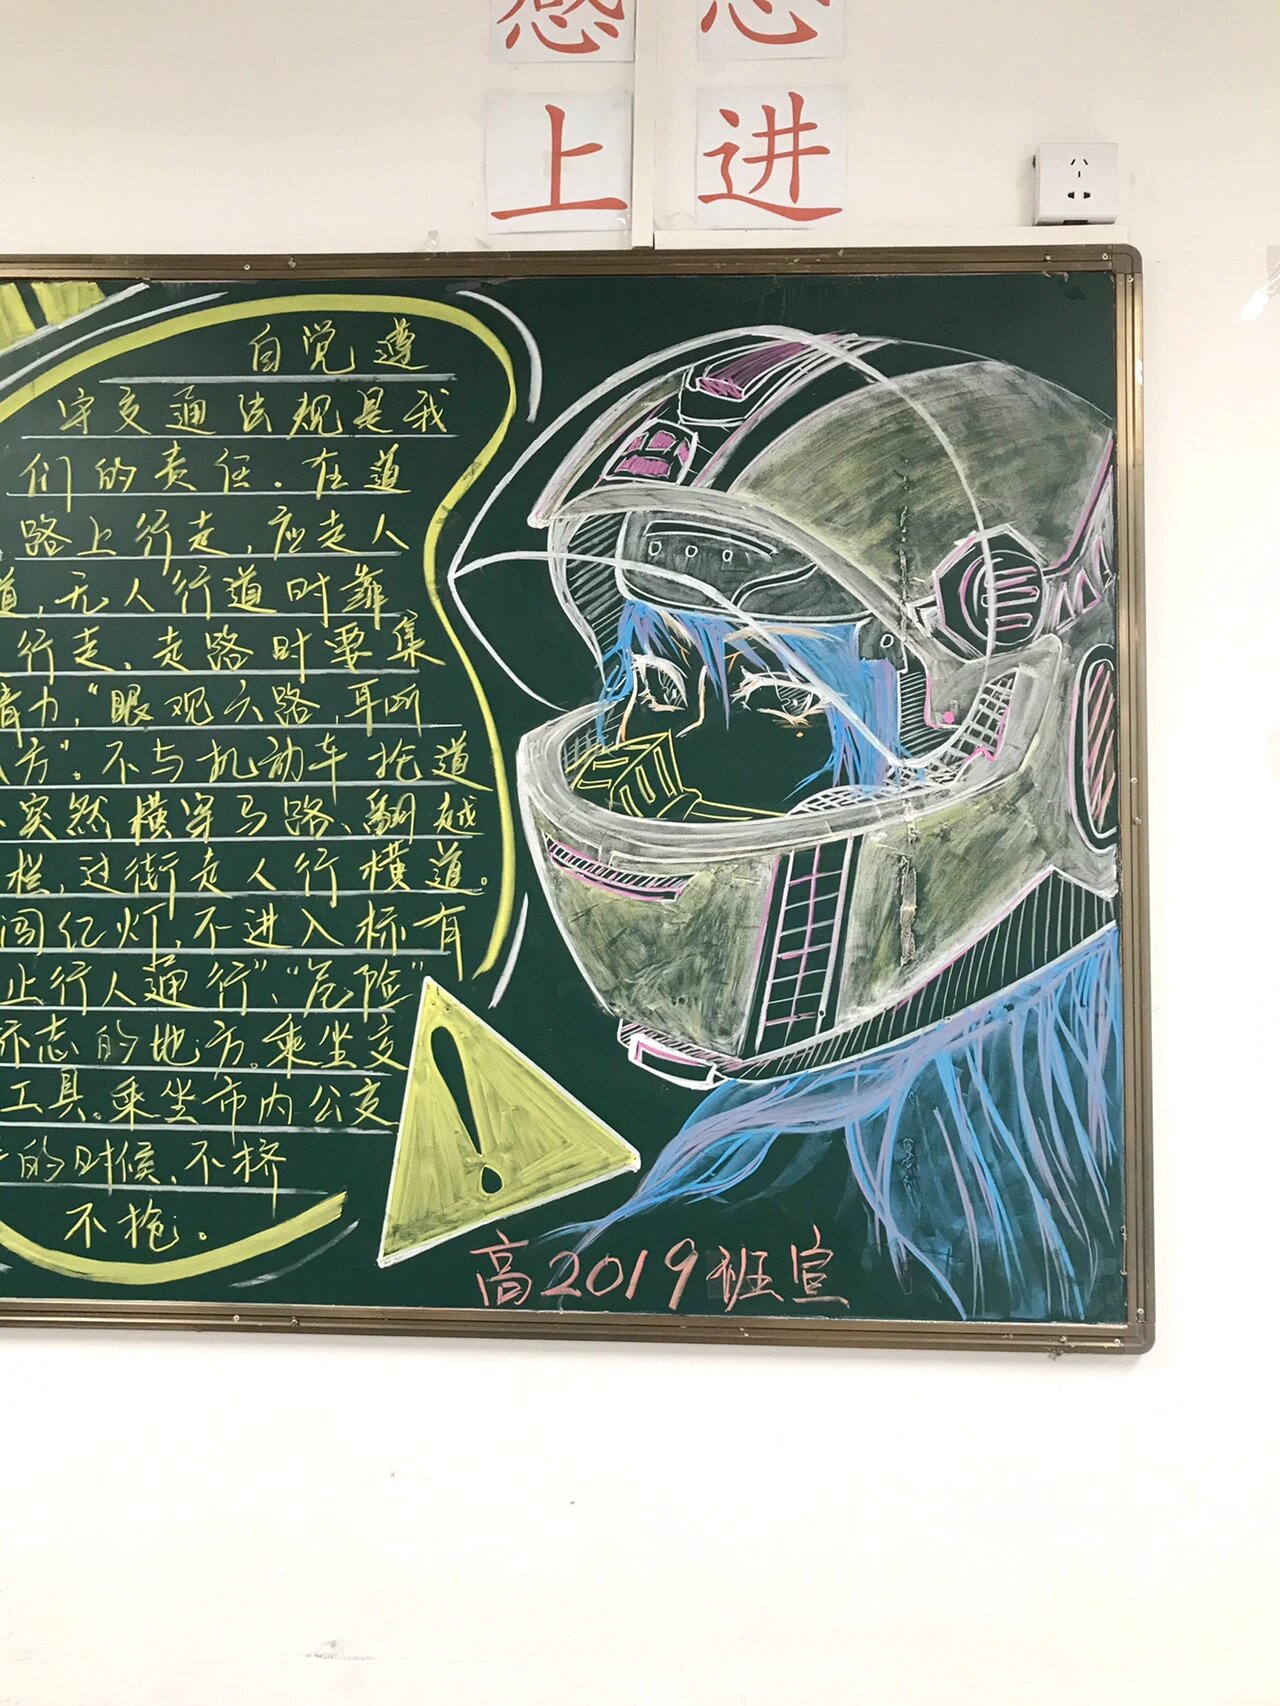 上 进
自觉遵
守交通法规是我
们的责任.在道
路上行走,应走人
道,无人行道时靠
行走、走路时要集
力,"眼观六路,耳听
方"。不与机动车抢道
突然横穿马路、翻越
栏,过街走人行横道。
闯红灯,不进入标有
止行人通行"、"危险"
标志的地方。乘坐交
工具。乘坐市内公交
的时候、不挤
不抢。
高2019班宣